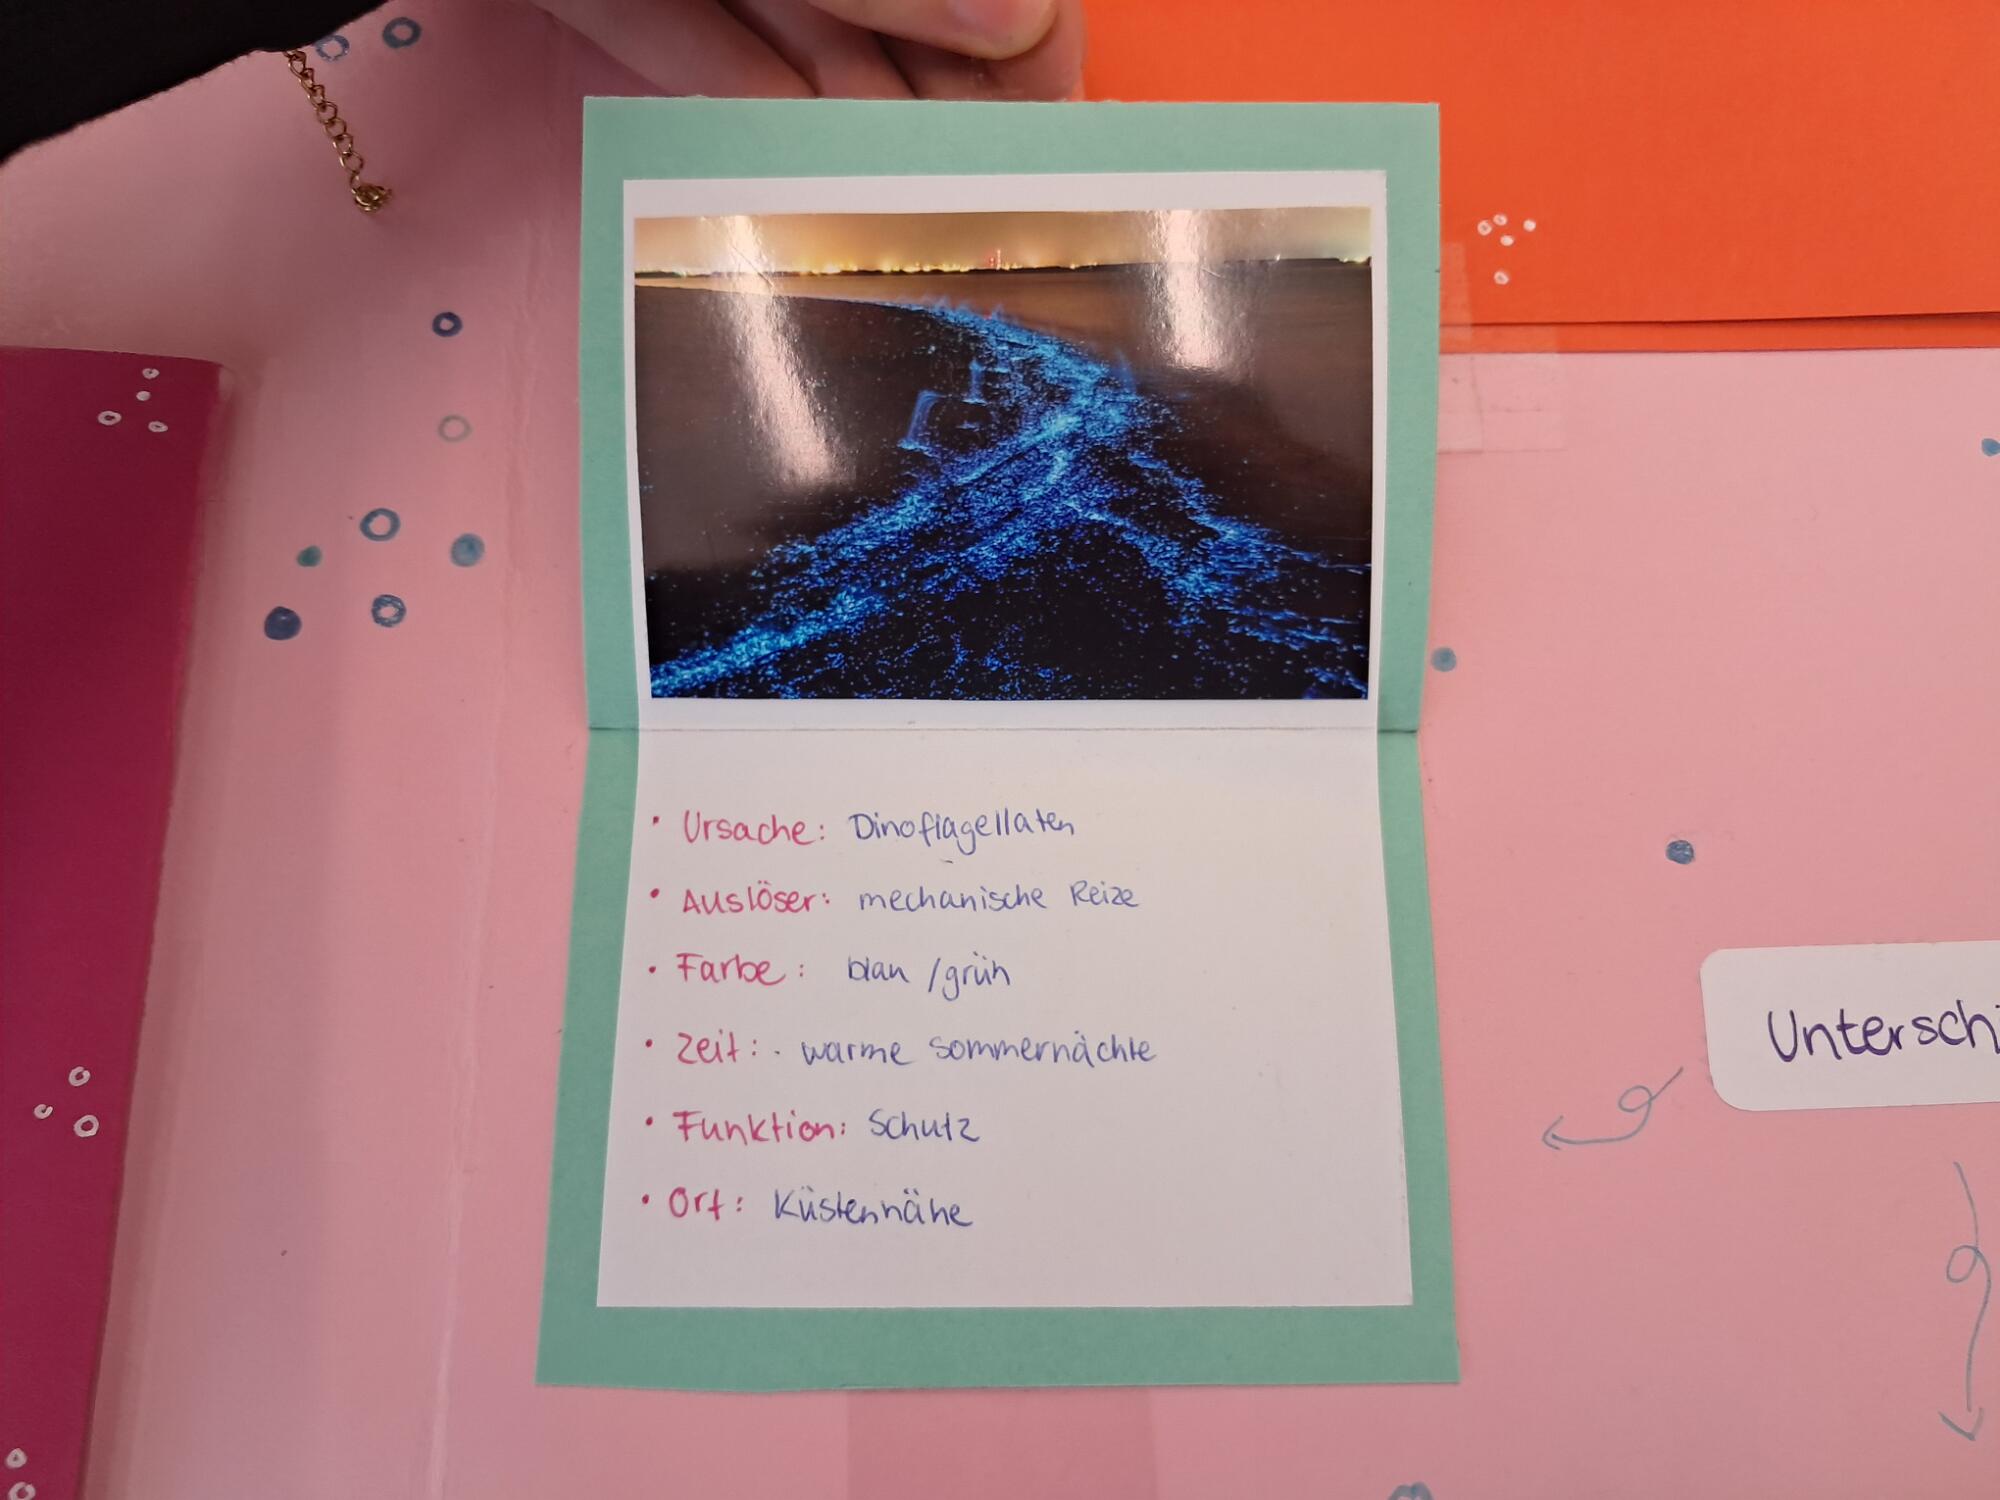 • Ursache: Dinoflagellaten
• Auslöser: mechanische Reize
• Farbe: blau / grün
• Zeit: warme Sommernächte
• Funktion: Schutz
• Ort: Küstennähe
Unterschi